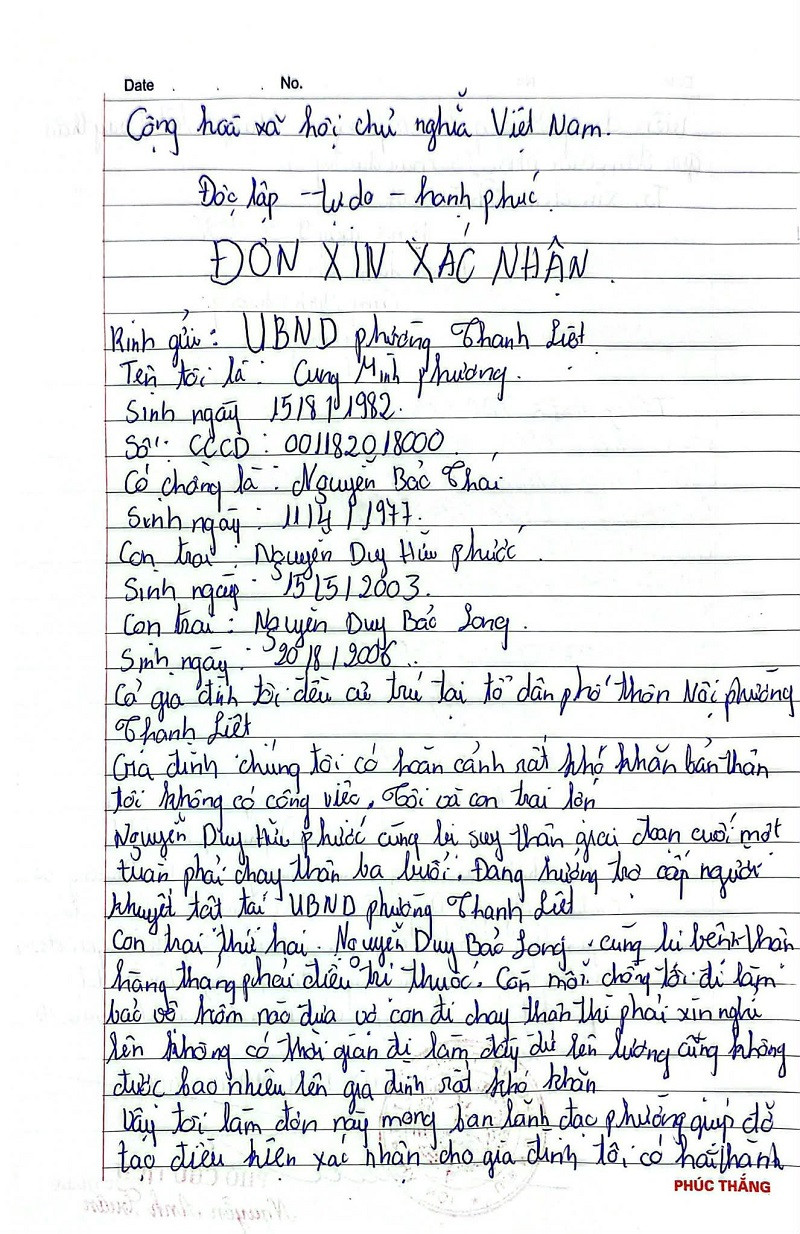 Date . . . No.
Cộng hoà xã hội chủ nghĩa Việt Nam.
Độc lập - tự do - hạnh phúc.
ĐƠN XIN XÁC NHẬN.
Kính gửi : UBND phường Thanh Liệt.
Tên tôi là : Cung Minh phương.
Sinh ngày 15/8/1982.
Số : CCCD : 001182018000
Có chồng là : Nguyễn Bắc Thái
Sinh ngày : 11/4/1977.
Con trai : Nguyễn Duy Hữu phước.
Sinh ngày : 15/5/2003.
Con trai : Nguyễn Duy Bảo Long.
Sinh ngày : 20/8/2006..
Cả gia đình tôi đều cư trú tại tổ dân phố thôn Nội phường
Thanh Liệt
Gia đình chúng tôi có hoàn cảnh rất khó khăn bản thân
tôi không có công việc. Tôi và con trai lớn
Nguyễn Duy Hữu phước cùng bị suy thận giai đoạn cuối một
tuần phải chạy thận ba buổi. Đang hưởng trợ cấp người
khuyết tật tại UBND phường Thanh Liệt
Con trai thứ hai. Nguyễn Duy Bảo Long. cũng bị bệnh thận
hàng tháng phải điều trị thuốc. Còn mỗi chồng tôi đi làm
bảo vệ hôm nào đưa vợ con đi chạy thận thì phải xin nghỉ
lên không có thời gian đi làm đầy đủ lên lương cũng không
được bao nhiêu lên gia đình rất khó khăn
Vậy tôi làm đơn này mong ban lãnh đạo phường giúp đỡ
tạo điều kiện xác nhận cho gia đình tôi có hai thành
PHÚC THẮNG